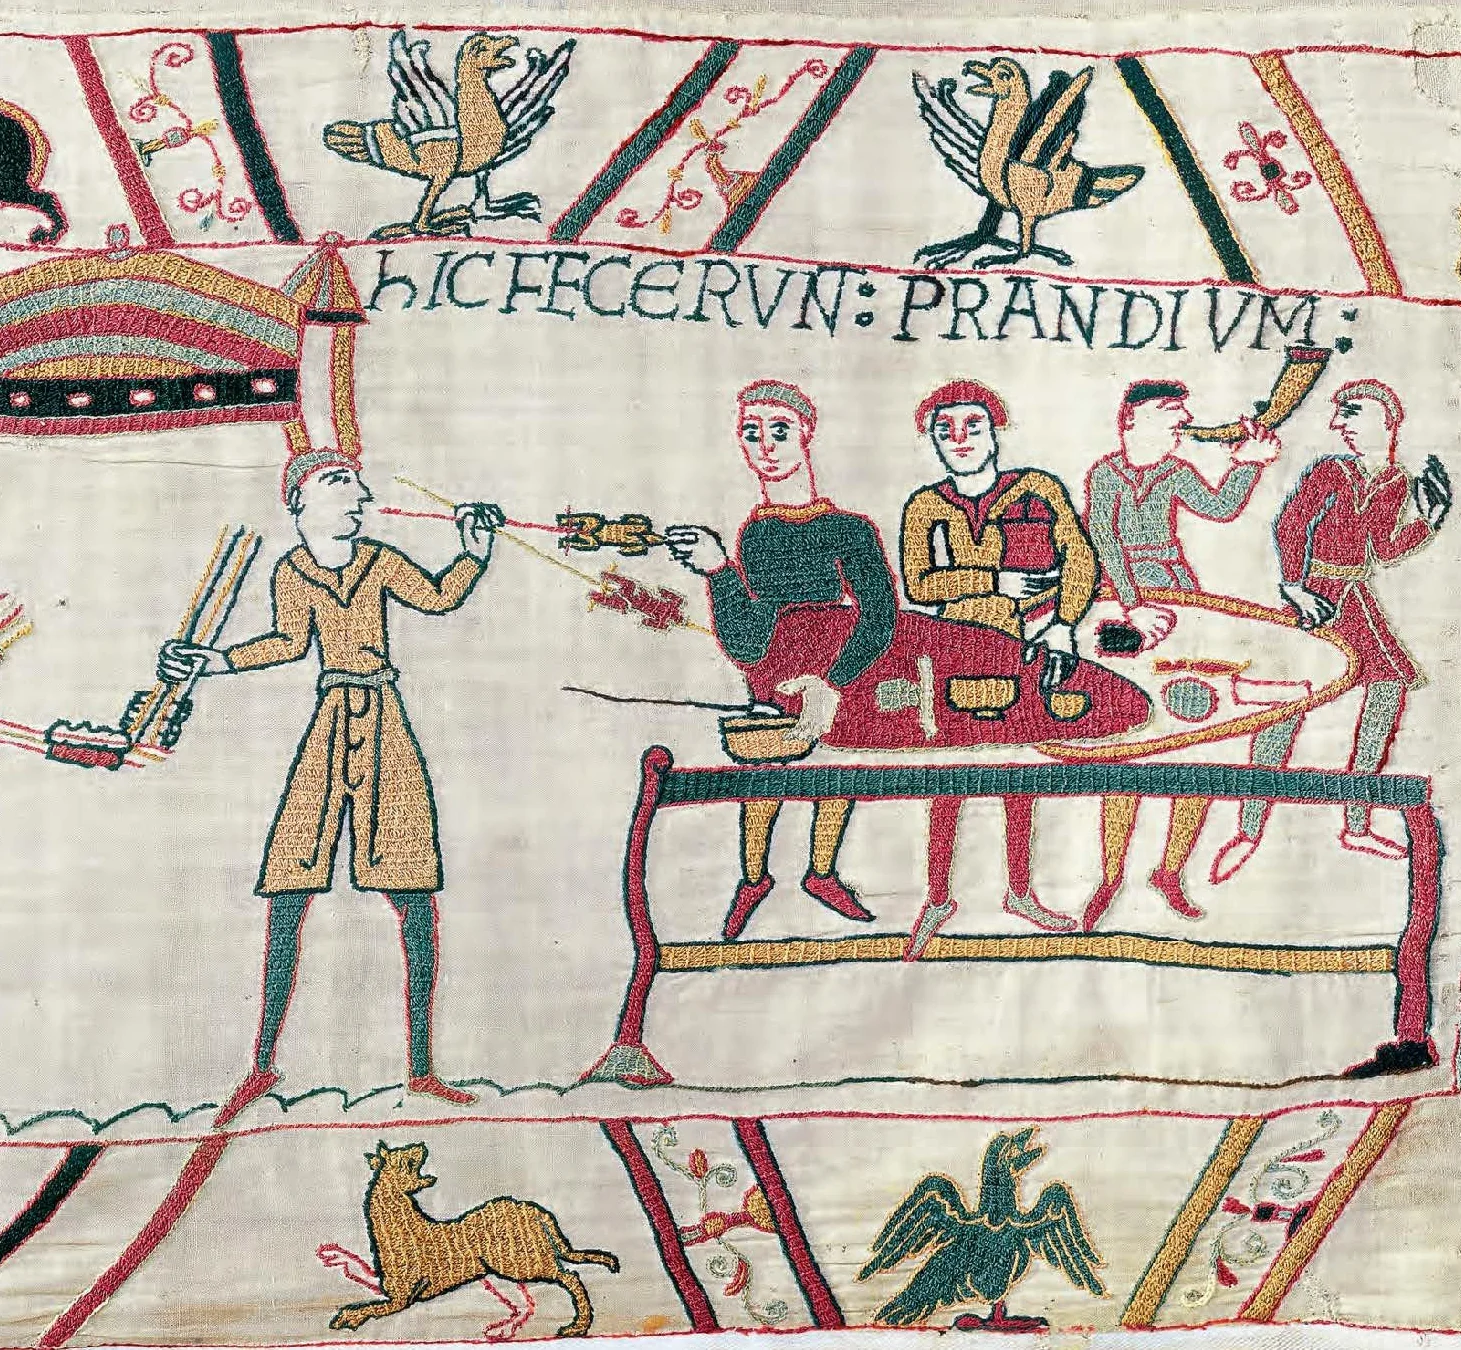 hIC FECERVNT: PRANDIVM: